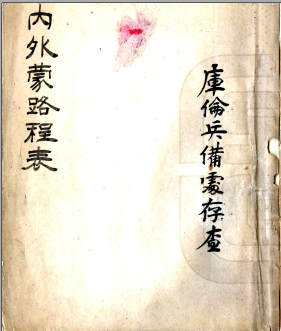 庫倫兵備處存查
內外蒙路程表